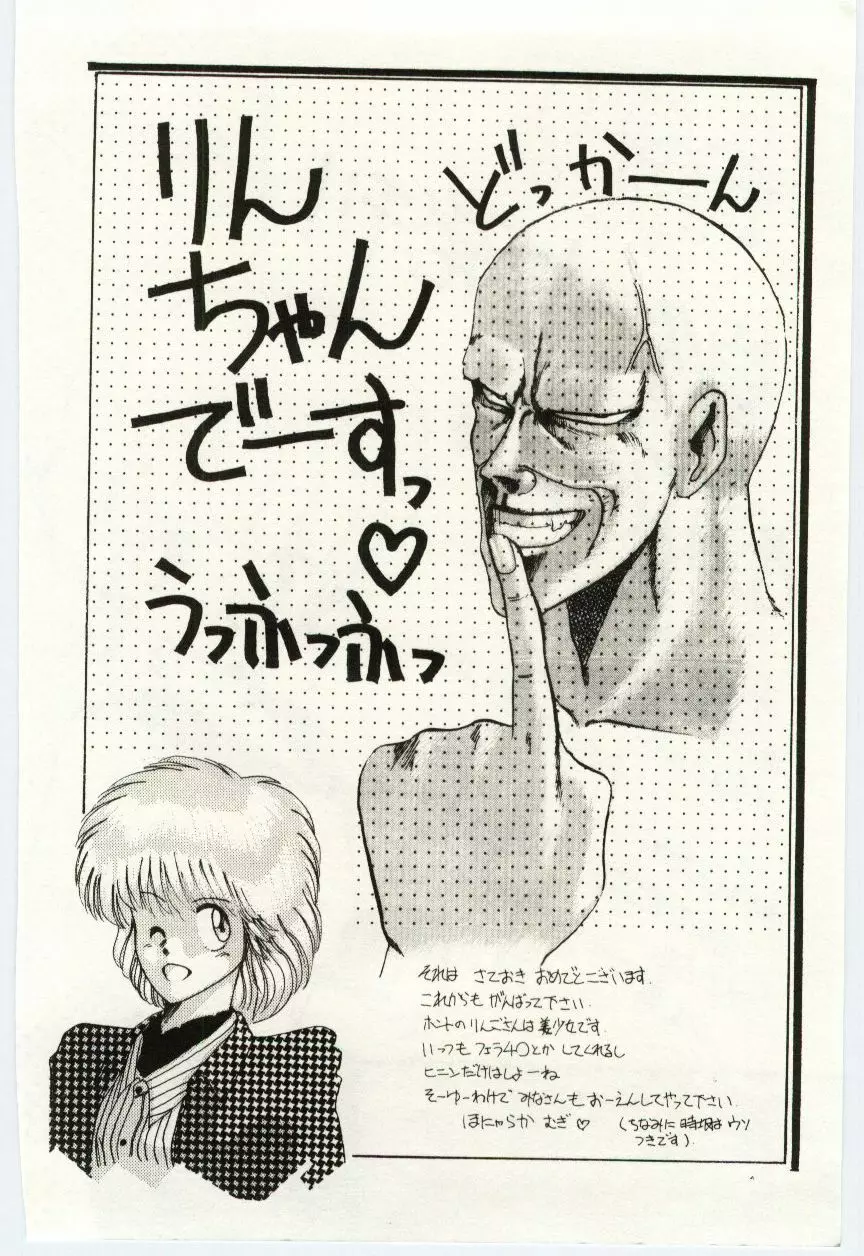 どっかーん
りん
ちゃん
でーすっ
♡
うっふっふっ
それは さておき おめでとございます.
これからも がんばって下さい.
ホントのりんごさんは美少女です.
いつも フェラ40とか してくれるし
ヒニンだけはしよーね
そーゆーわけで みなさんも おーえんしてやって下さい.
ほにゃらか むぎ♡ (ちなみに 時坂は ウソ
つきです).